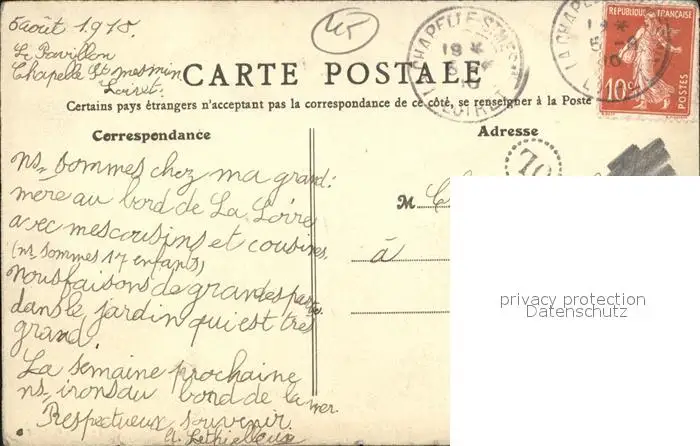 5 août 1910.
Le Pavillon
Chapelle St Mesmin
Loiret.
45
CHAPELLE-ST-MESMIN
LOIRET
LA CHAPELLE
RÉPUBLIQUE FRANÇAISE
10c
POSTES
CARTE POSTALE
Certains pays étrangers n'acceptant pas la correspondance de ce côté, se renseigner à la Poste
Correspondance
Adresse
70
ns, sommes chez ma grand!
mere au bord de La Loire
avec mes cousins et cousines.
(ns, sommes 17 enfants)
nous faisons de grandes parties
dans le jardin qui est très
grand.
La semaine prochaine
ns, irons au bord de la mer.
Respectueux souvenir.
M
à
privacy protection
Datenschutz